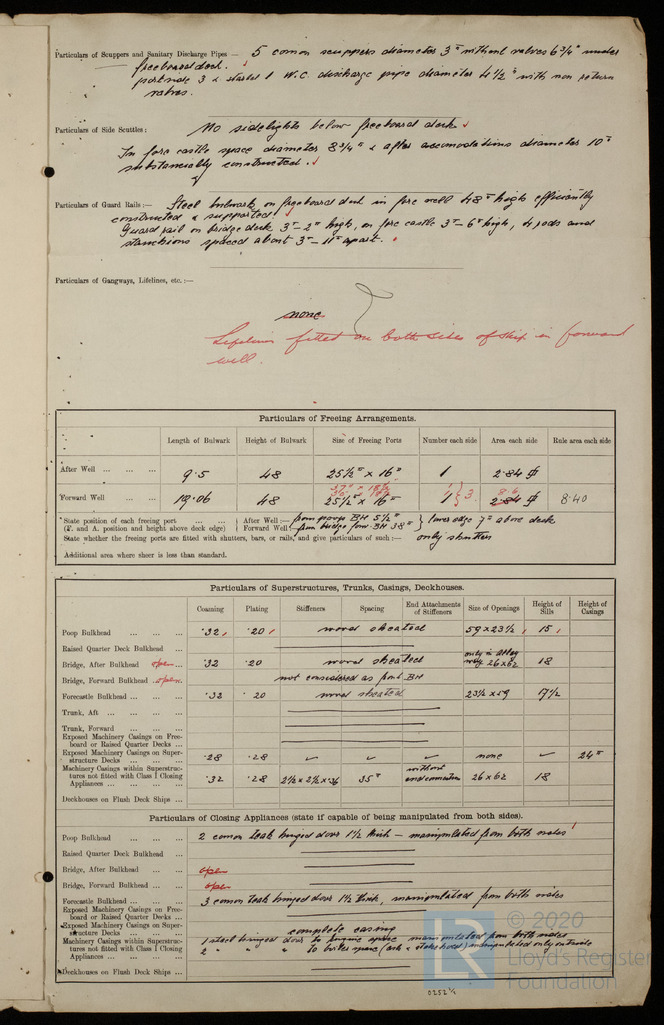 Particulars of Scuppers and Sanitary Discharge Pipes — 5 comon scuppers diameter 3" without valves 6 3/4" under
freeboard deck.
portside 3 & starbd 1 W.C. discharge pipe diameter 4 1/2" with non return
valves.
Particulars of Side Scuttles: No sidelights below freeboard deck
In fore castle space diameter 8 3/4" & after accomodations diameter 10"
substancially constructed.
Particulars of Guard Rails:— Steel bulwark on freeboard deck in fore well 48" high efficiently
constructed & supported
Guard rail on bridge deck 3'-2" high, on fore castle 3'-6" high, 4 rods and
stanchions spaced about 3'-11" apart.
Particulars of Gangways, Lifelines, etc.:—
none
Lifelines fitted on both sides of ship in forward
well.
Particulars of Freeing Arrangements.
Length of Bulwark Height of Bulwark Size of Freeing Ports Number each side Area each side Rule area each side
After Well ... ... ... 9.5 48 25 1/2" x 16" 1 2.84
Forward Well ... ... 19.06 48 25 1/2" x 16" 3 2.84 8.40
State position of each freeing port ... ... After Well:— from poop BH 5 1/2" lower edge 7" above deck
(F. and A. position and height above deck edge) Forward Well:— from bridge front BH 38"
State whether the freeing ports are fitted with shutters, bars, or rails, and give particulars of such:— only shutters
Additional area where sheer is less than standard.
Particulars of Superstructures, Trunks, Casings, Deckhouses.
Coaming Plating Stiffeners Spacing End Attachments of Stiffeners Size of Openings Height of Sills Height of Casings
Poop Bulkhead ... ... ... .32 .20 wood sheated 59 x 23 1/2 15
Raised Quarter Deck Bulkhead ...
Bridge, After Bulkhead open ... .32 .20 wood sheated only in alley way 26x62 18
Bridge, Forward Bulkhead open. not considered as front BH
Forecastle Bulkhead ... ... ... .32 .20 wood sheated 23 1/2 x 59 17 1/2
Trunk, Aft ... ... ... ...
Trunk, Forward ... ... ...
Exposed Machinery Casings on Freeboard or Raised Quarter Decks ...
Exposed Machinery Casings on Superstructure Decks ... ... ... .28 .28 ✓ ✓ ✓ none ✓ 24"
Machinery Casings within Superstructures not fitted with Class I Closing Appliances ... ... ... .32 .28 2 1/2 x 2 1/2 x .36 35" without end connection 26 x 62 18
Deckhouses on Flush Deck Ships ...
Particulars of Closing Appliances (state if capable of being manipulated from both sides).
Poop Bulkhead ... ... ... 2 comon teak hinged door 1 1/2 thick — manipulated from both sides
Raised Quarter Deck Bulkhead ...
Bridge, After Bulkhead ... ... open
Bridge, Forward Bulkhead ... open
Forecastle Bulkhead ... ... ... 3 comon teak hinged door 1 1/2 thick, manipulated from both sides
Exposed Machinery Casings on Freeboard or Raised Quarter Decks ...
Exposed Machinery Casings on Superstructure Decks ... ... ... complete casing
Machinery Casings within Superstructures not fitted with Class I Closing Appliances ... ... ... 1 steel hinged door to engine space manipulated from both sides
2 " " " to boiler space (ash & stokehold) manipulated only outside
Deckhouses on Flush Deck Ships ...
© 2020
Lloyd's Register
Foundation
0252 1/2